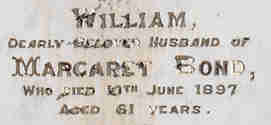 WILLIAM,
DEARLY BELOVED HUSBAND OF
MARGARET BOND,
WHO DIED JUNE 1897
AGED 61 YEARS.